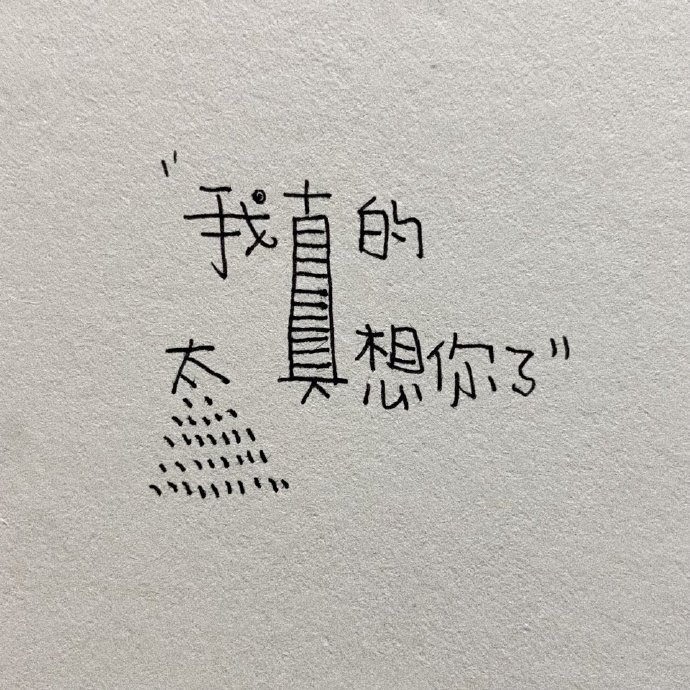 “我真的
太真想你了”